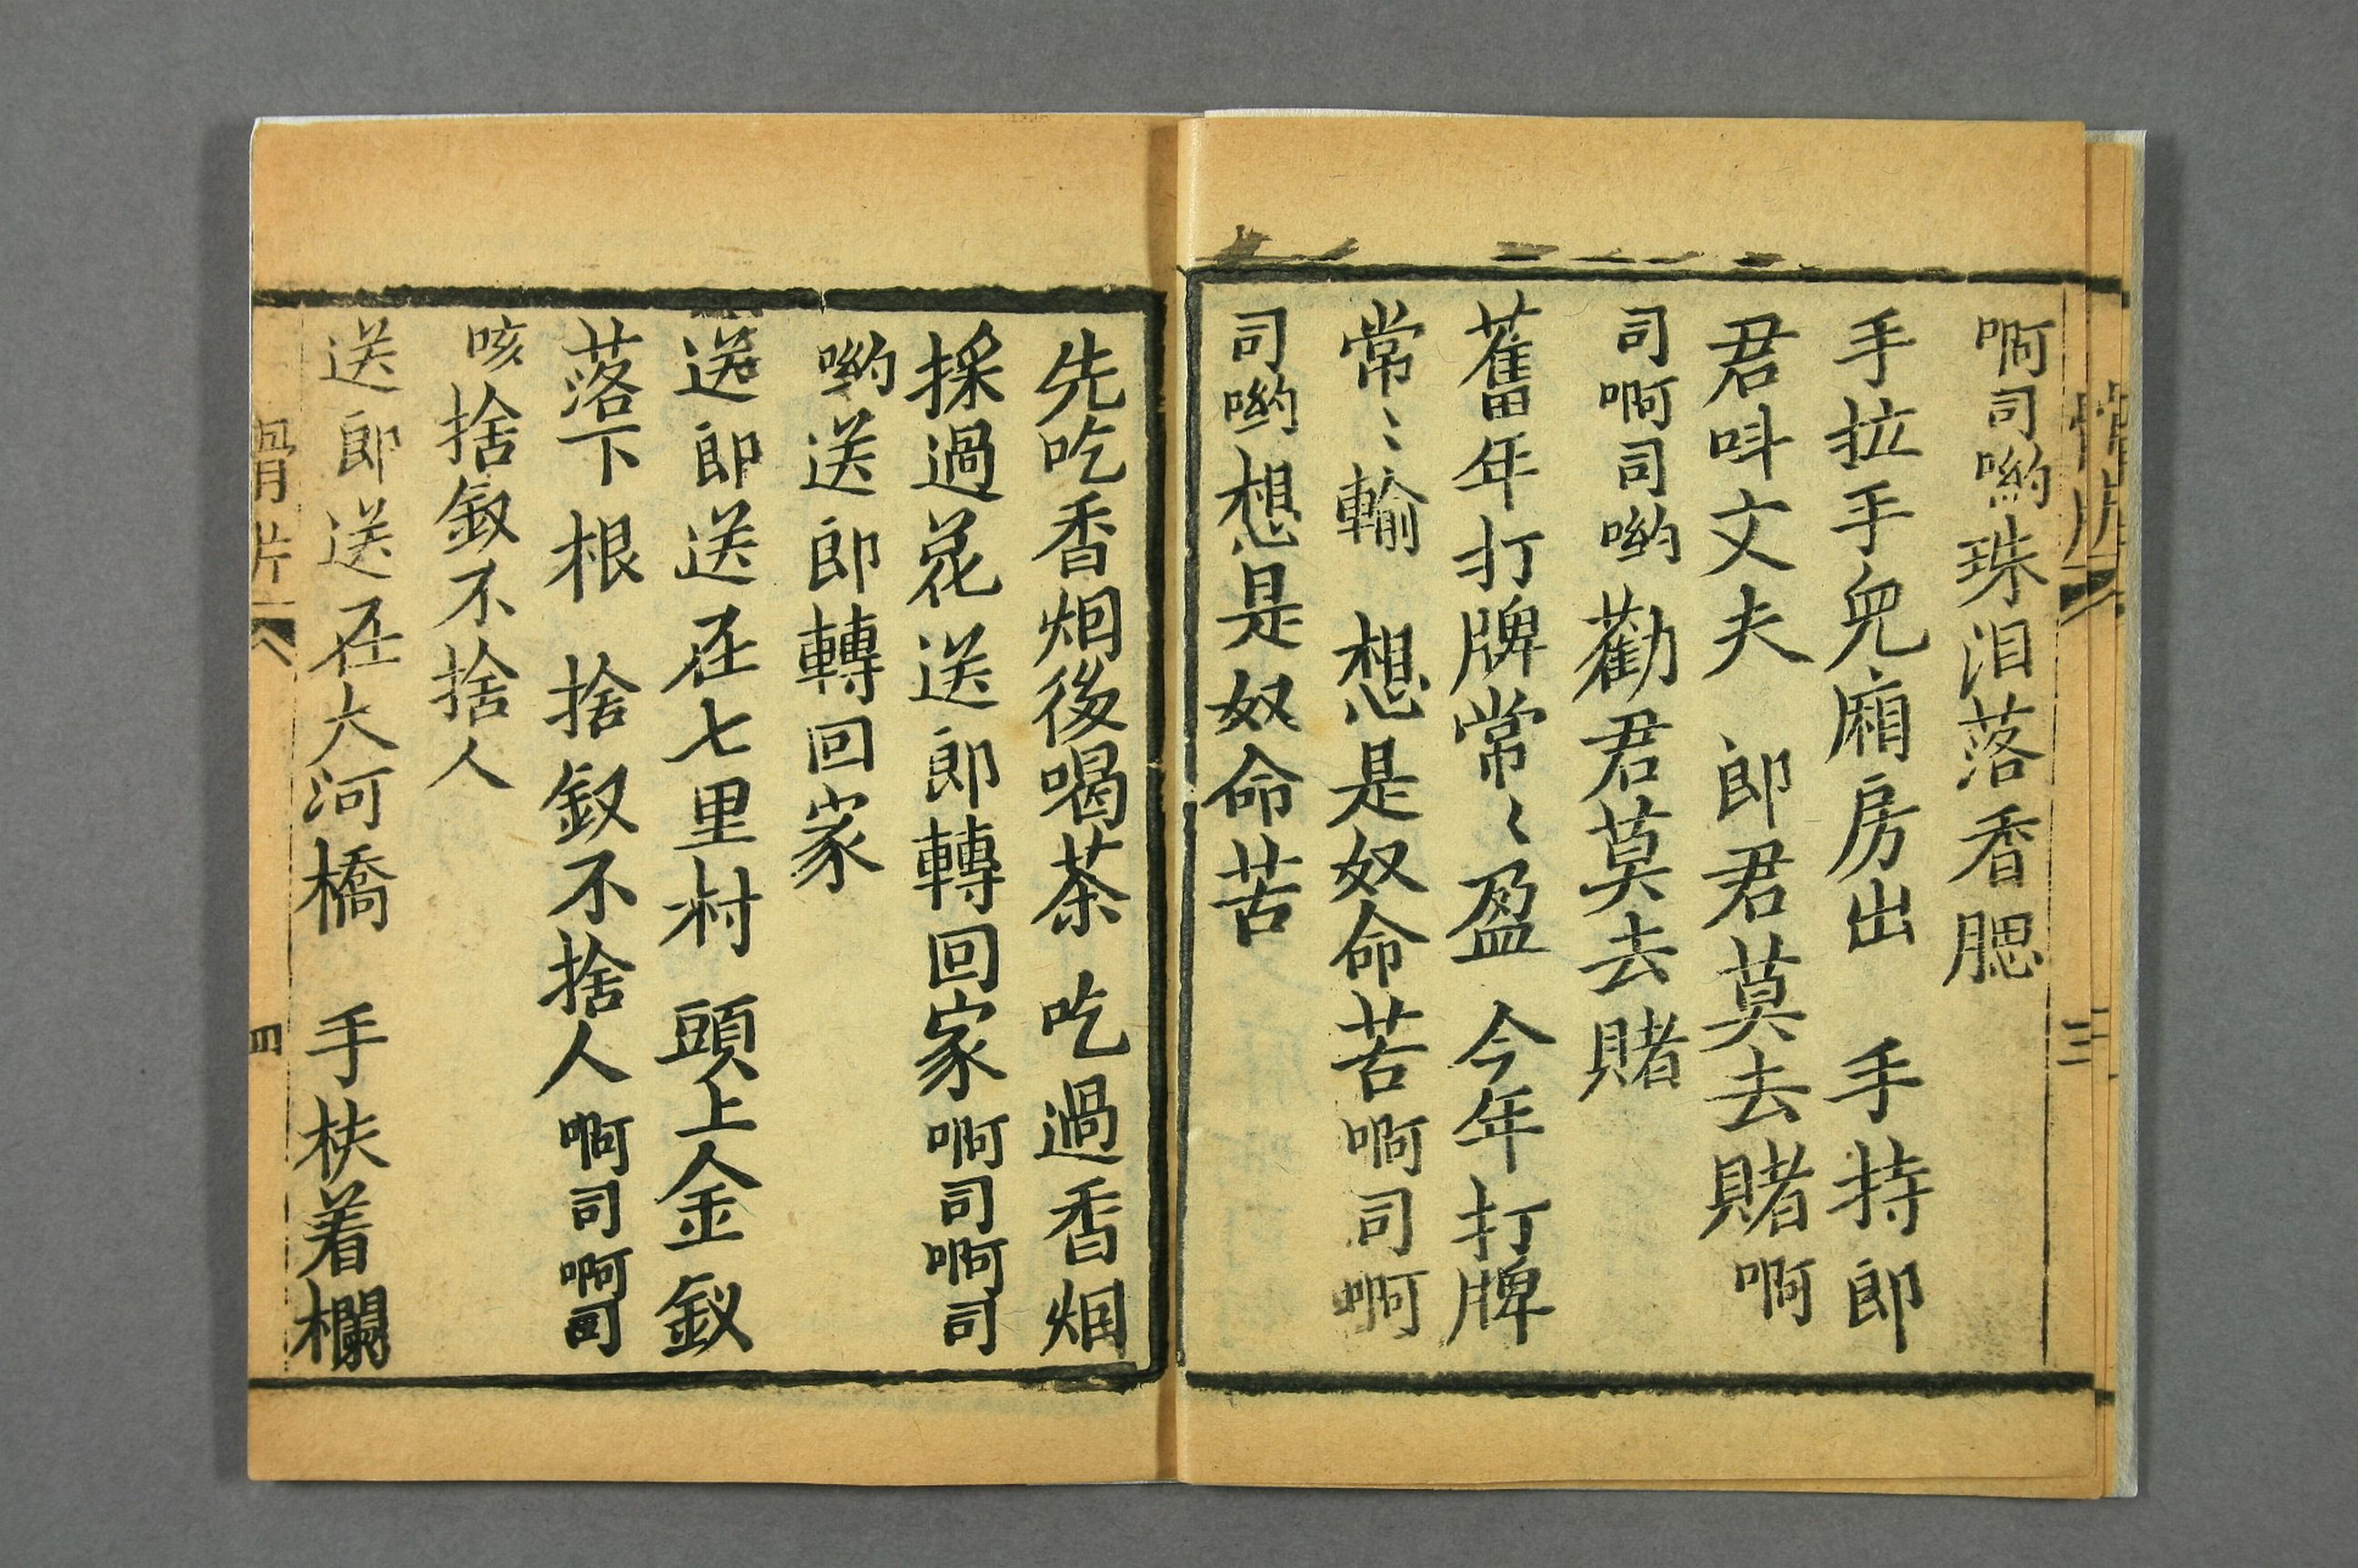 啊司喲珠泪落香腮
手拉手兒廂房出　手持郎
君呌丈夫　郎君莫去賭啊
司啊司喲勸君莫去賭
舊年打牌常〻盈　今年打牌
常〻輸　想是奴命苦啊司啊
司喲想是奴命苦
三
先吃香烟後喝茶　吃過香烟
採過花送郎轉回家啊司啊司
喲送郎轉回家
送郎送在七里村　頭上金釵
落下根　捨釵不捨人啊司啊司
咳捨釵不捨人
送郎送在大河橋　手扶着欄
四